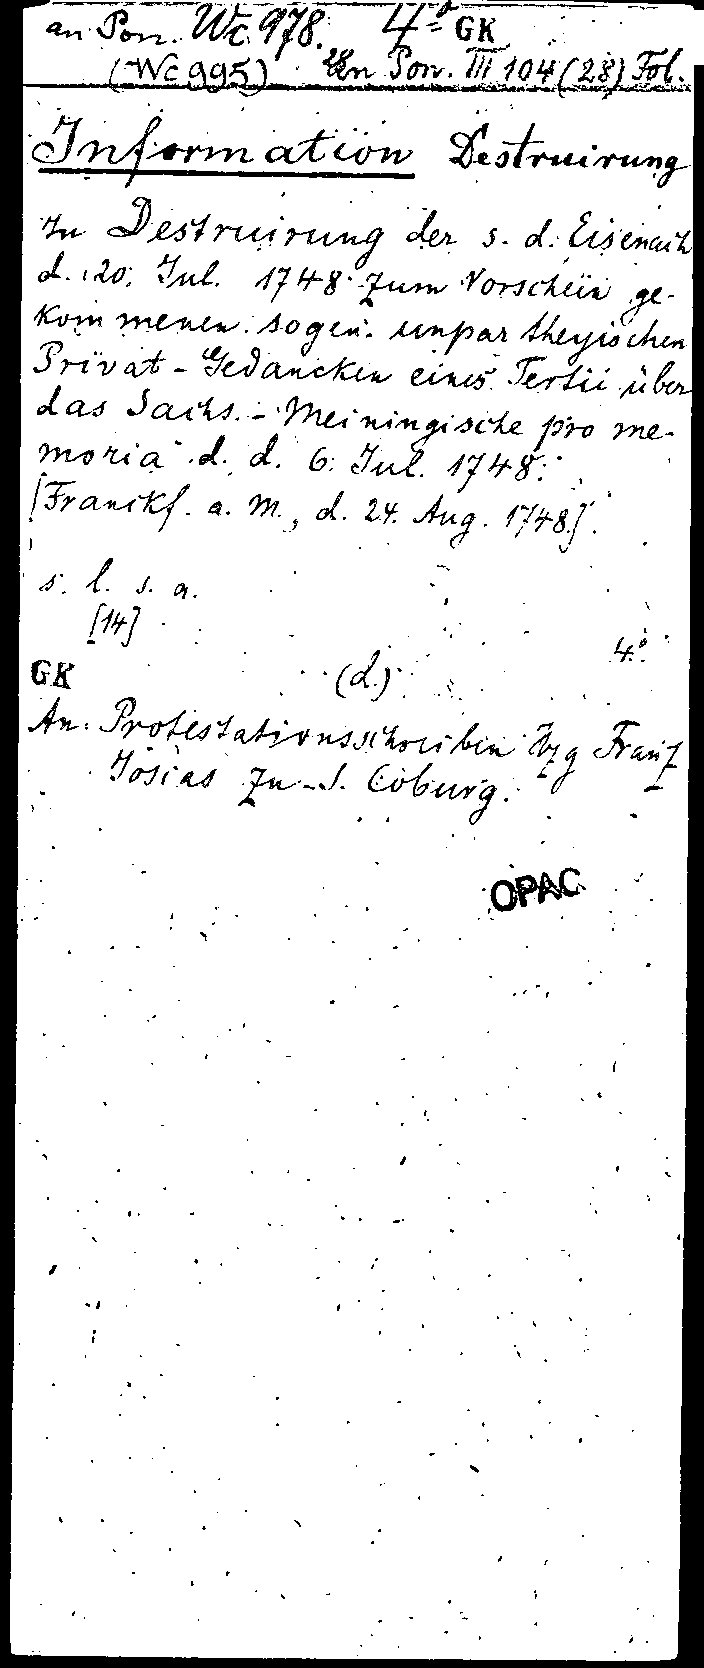 an Pon. Wc 978. 4° GK
(Wc 995) An Pon. III 104 (28) Fol.
Information Destruirung
Zu Destruirung der s. d. Eisenach
d. 20. Jul. 1748 zum Vorschein ge-
kommenen sogen. unpartheyischen
Privat-Gedancken eines Tertii über
das Sachs.-Meiningische pro me-
moria d. d. 6. Jul. 1748.
[Franckf. a. M., d. 24. Aug. 1748].
s. l. s. a.
[14]
4°.
GK (d.)
An: Protestationsschreiben Hzg Franz
Josias zu S. Coburg.
OPAC